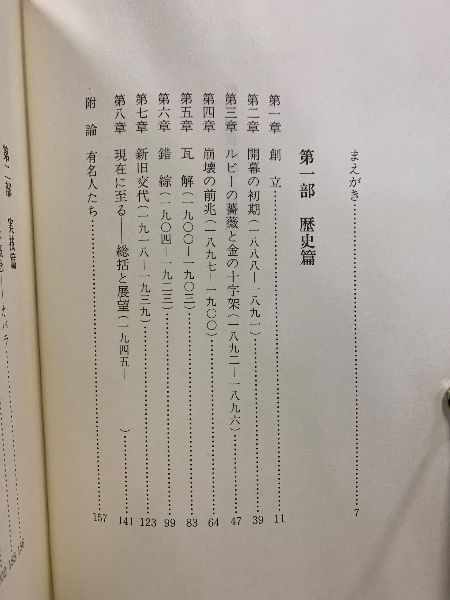 まえがき……………………………7
第一部 歴史篇
第一章 創 立……………………………11
第二章 開幕の初期(一八八八―一八九一)……………………………39
第三章 ルビーの薔薇と金の十字架(一八九二―一八九六)……………47
第四章 崩壊の前兆(一八九七―一九〇〇)……………………………64
第五章 瓦 解(一九〇〇―一九〇三)……………………………83
第六章 錯 綜(一九〇四―一九二三)……………………………99
第七章 新旧交代(一九一八―一九三九)……………………………123
第八章 現在に至る――総括と展望(一九四五― )……………141
附 論 有名人たち……………………………157
第二部 実技篇